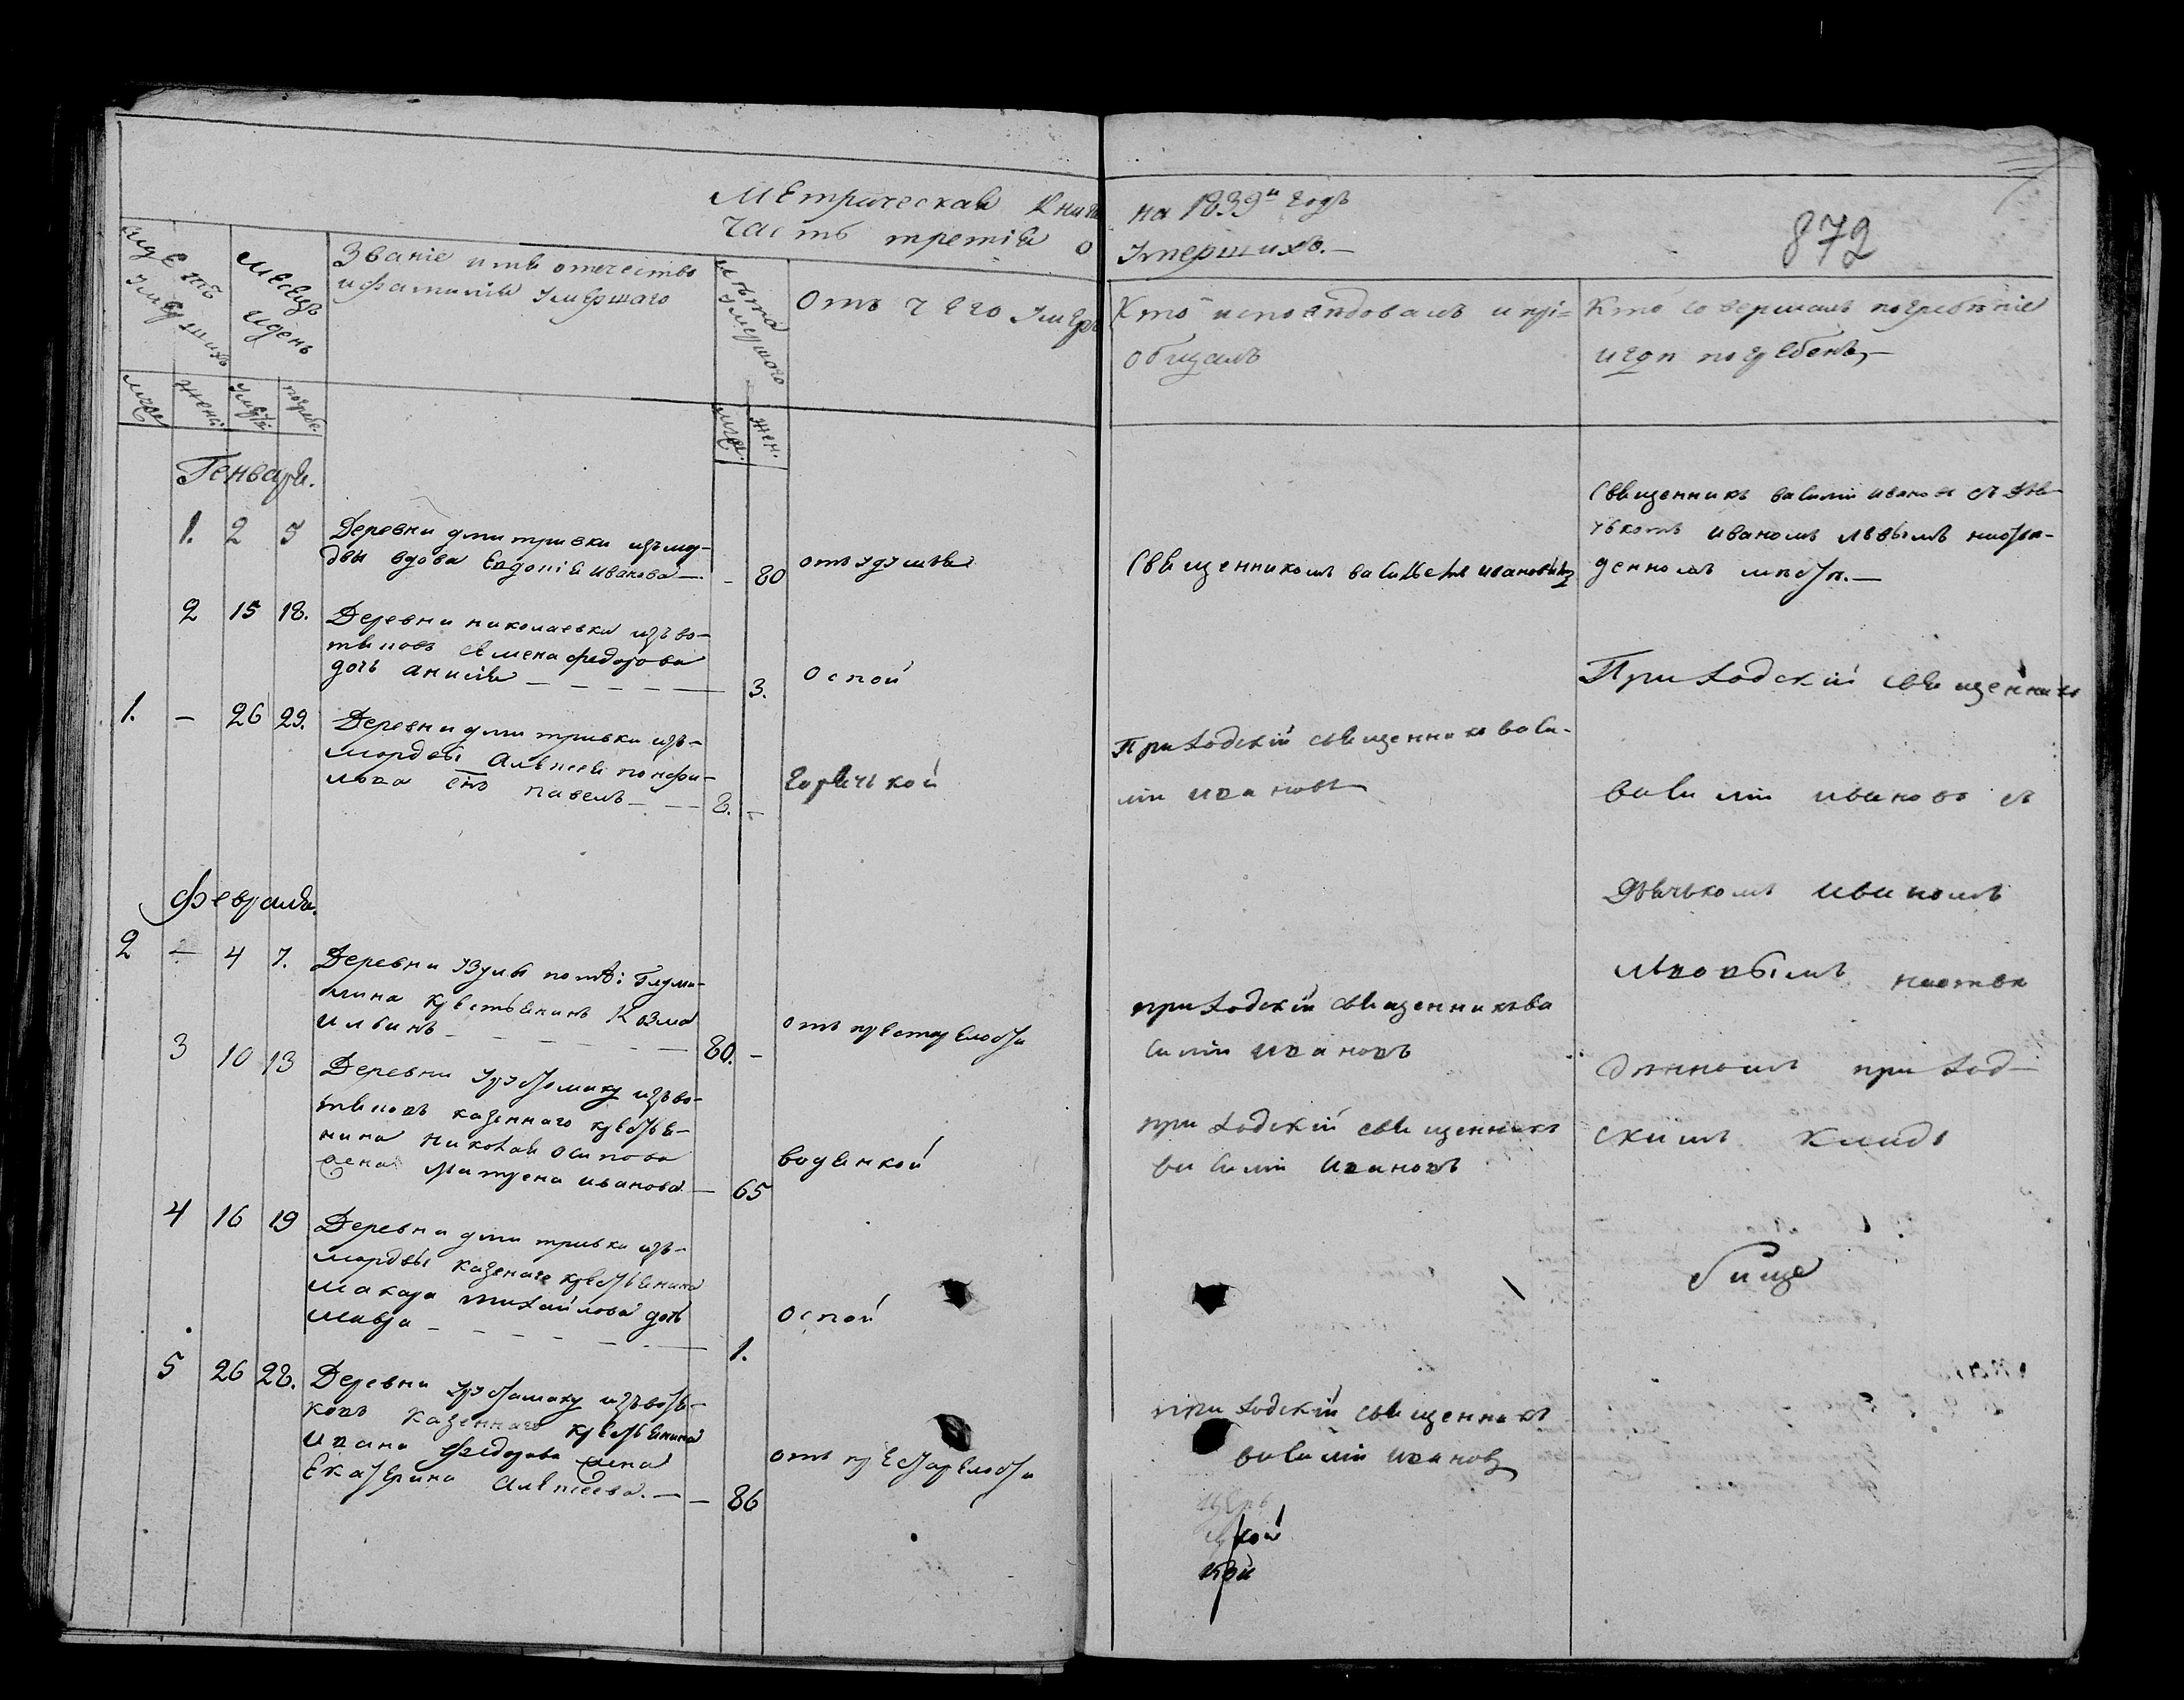 Метрическая Книга на 1839й годъ
Часть третія о Умершихъ.—
872
Счетъ Умершихъ
Месяцъ и день
Званіе имя отечество
и фамилія Умершаго
Лѣта Умершаго
Отъ чего Умеръ
Кто исповѣдовалъ и прі=
общалъ
Кто совершалъ погребѣніе
и гдѣ погребенъ,—
муж.
женс.
погреб.
муж.
жен.
Генваря.
1. 2 5
Деревни дмитривки изъ мор-
двы вдова Евдокія Иванова — - 80
отъ удушья
Священникомъ василіемъ ивановымъ
Священникъ василій ивановъ съ дья-
чькомъ иваномъ львымъ
2 15 18.
Деревни николаевки изъ во-
тяковъ семена федорова
дочь анисія — 3.
Оспой
1. — 26 29.
Деревни дмитривки изъ-
мордвы Алексея
сынъ павелъ — 8. -
Горячькой
Приходскій священникъ васи-
лій ивановъ
Приходскій священникъ
василій ивановъ съ
Дьячькомъ иваномъ
приход-
скимъ кладб
бище
Февраля.
2 — 4 7.
Деревни
крестьянинъ Козма
Ильинъ — 80. -
отъ престарелости
приходскій священникъ ва
силій ивановъ
3 10 13
Деревни изъ во-
тяковъ казеннаго крестья-
нина Николая Осипова
жена Матрена иванова — 65
водянкой
приходскій священникъ
василій ивановъ
4 16 19
Деревни дмитривки изъ-
мордвы казенаго крестьянина
Макара михайлова дочь
Мавра — 1.
Оспой
5 26 28.
Деревни
казеннаго крестьянина
ивана федорова жена
Екатерина Алексеева. — - 86
отъ престарелости
приходскій священникъ
василій ивановъ
кой